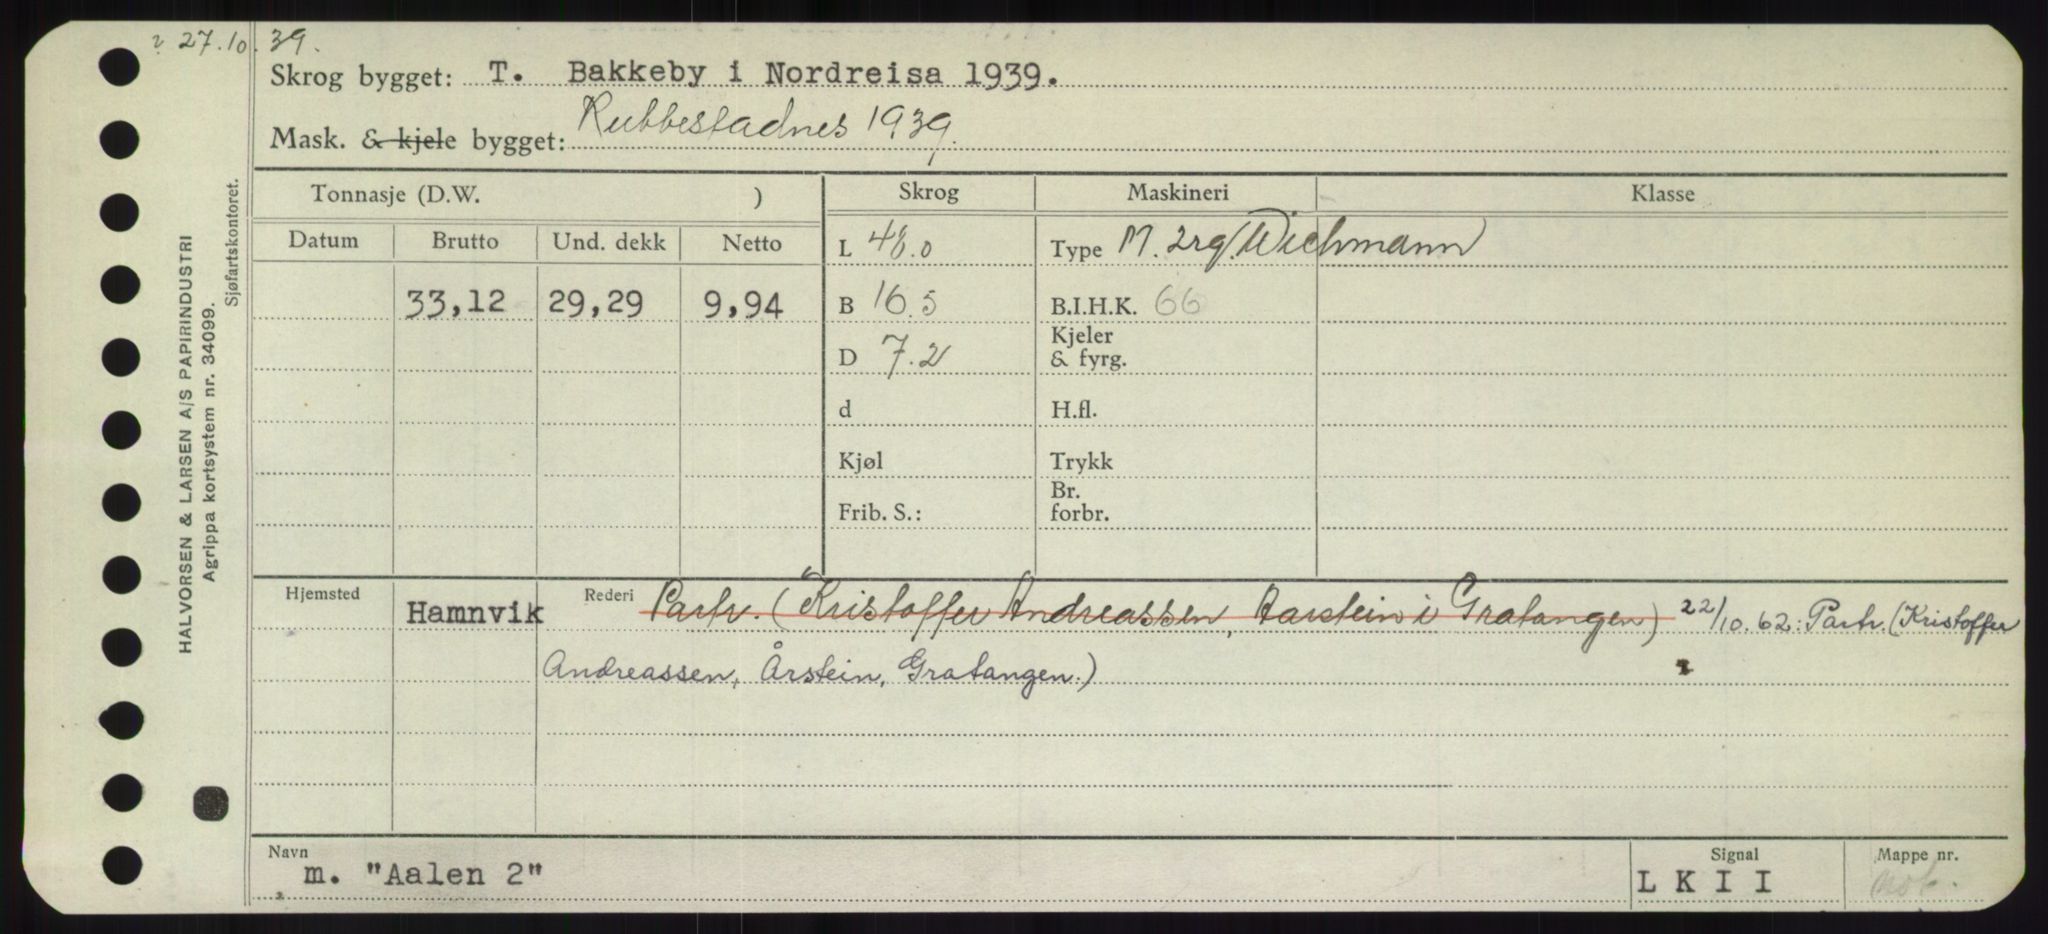 27.10.39.
Skrog bygget: T. Bakkeby i Nordreisa 1939.
Mask. & kjele bygget: Rubbestadnes 1939.
Tonnasje (D.W. ) Skrog Maskineri Klasse
Datum Brutto Und. dekk Netto L 48.0 Type M. 2rg. Wichmann
33,12 29,29 9,94 B 16.5 B.I.H.K. 66
D 7.2 Kjeler & fyrg.
d H.fl.
Kjøl Trykk
Frib. S.: Br. forbr.
Hjemsted Hamnvik Rederi Partr. (Kristoffer Andreassen, Aarstein i Gratangen) 22/10.62: Partr. (Kristoffer
Andreassen, Årstein, Gratangen.)
Navn Signal Mappe nr.
m. "Aalen 2" LKII
HALVORSEN & LARSEN A/S PAPIRINDUSTRI
Agrippa kortsystem nr. 34099.
Sjøfartskontoret.